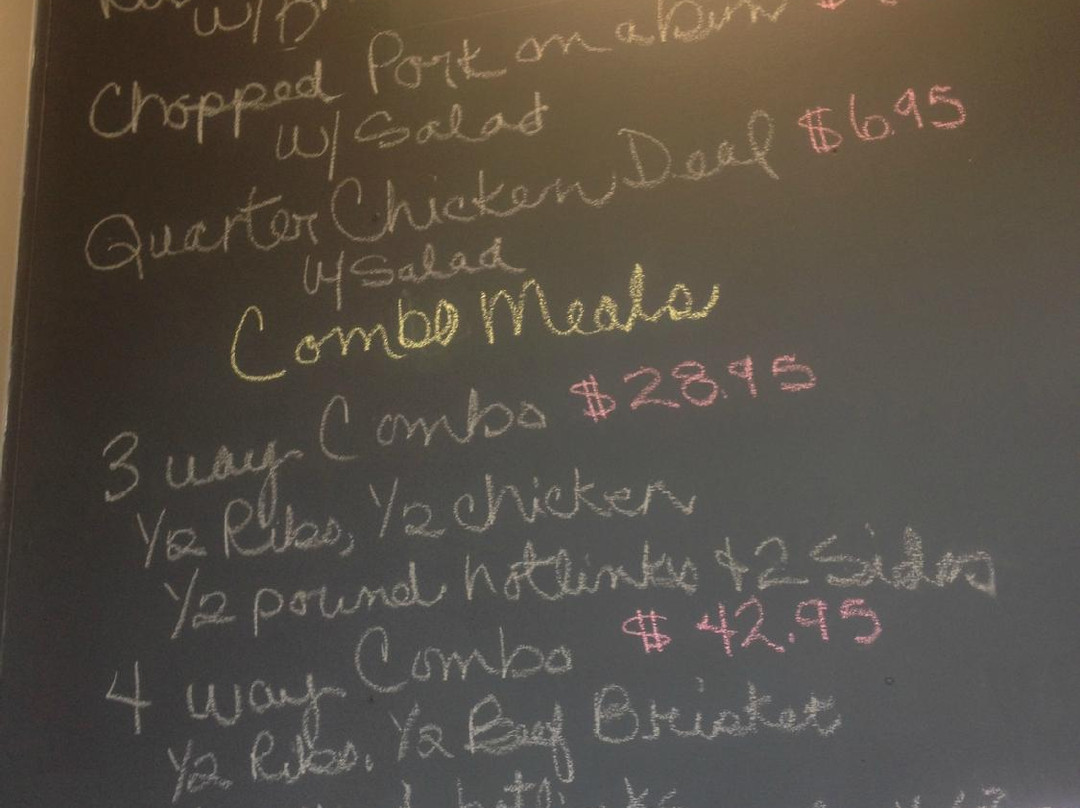 w/
Chopped Pork on a bun $
w/ Salad
Quarter Chicken Deal $6.95
w/ Salad
Combo Meals
3 way Combo $28.95
1/2 Ribs, 1/2 chicken
1/2 pound hotlinks & 2 Sides
4 way Combo $42.95
1/2 Ribs, 1/2 Beef Brisket